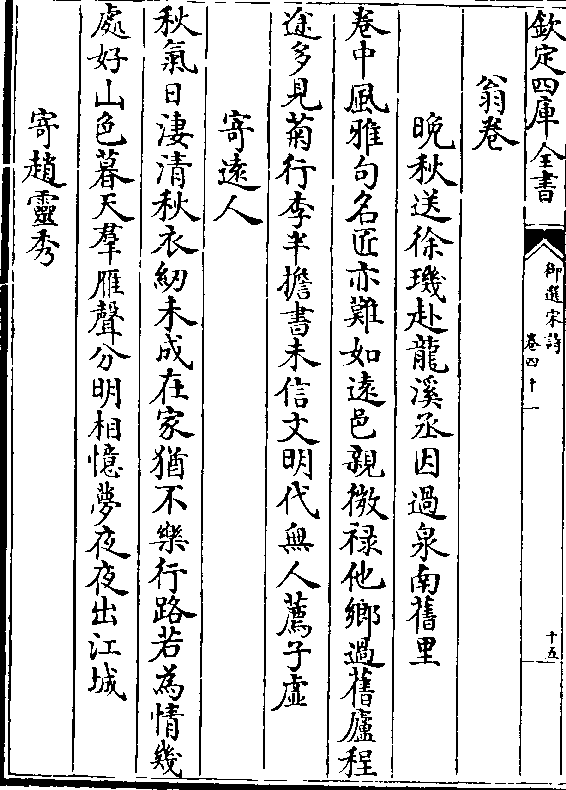 欽定四庫全書
御選宋詩
卷四十一
十五
翁卷
晚秋送徐璣赴龍溪丞因過泉南舊里
卷中風雅句名匠亦難如遠邑親微祿他鄉過舊廬程
途多見菊行李半擔書未信文明代無人薦子虛
寄遠人
秋氣日淒清秋衣紉未成在家猶不樂行路若為情幾
處好山色暮天羣雁聲分明相憶夢夜夜出江城
寄趙靈秀